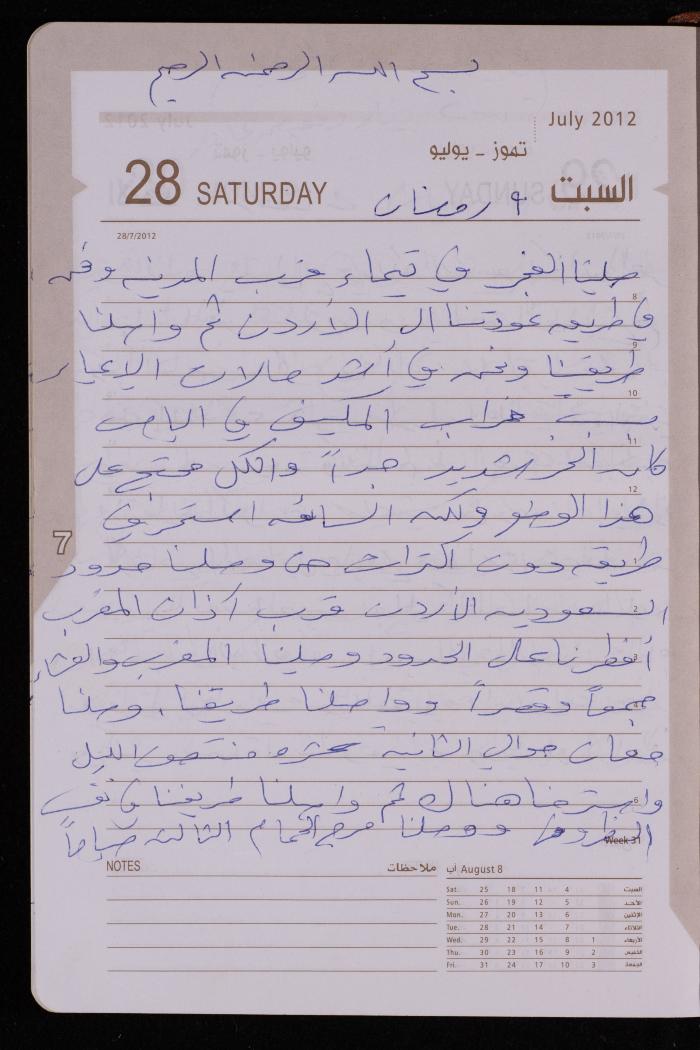 بسم الله الرحمن الرحيم
July 2012
تموز - يوليو
28 SATURDAY ٩ رمضان السبت
28/7/2012
صلينا الفجر في تيماء غرب المدينه ونحن
8
في طريق عودتنا الى الأردن ثم واصلنا
9
طريقنا ونحن في أشد حالات الإعياء
10
بسبب خراب المكيف في الباص
11
كان الحر شديد جداً والكل محتج على
12
هذا الوضع ولكن السائق استمر في
طريقه دون اكتراث حتى وصلنا حدود
7
السعوديه الأردن قرب آذان المغرب
2
أفطرنا على الحدود وصلينا المغرب والعشاء
3
جمعاً وقصراً وواصلنا طريقنا. وصلنا
4
معان حوالي الثانية عشره منتصف الليل
واسترحنا هناك ثم واصلنا طريقنا في نفس
6
الظروف ووصلنا مرج الحمام الثالثه صباحاً
Week 31
NOTES ملاحظات
آب August 8
Sat. 25 18 11 4 السبت
Sun. 26 19 12 5 الأحد
Mon. 27 20 13 6 الإثنين
Tue. 28 21 14 7 الثلاثاء
Wed. 29 22 15 8 1 الأربعاء
Thu. 30 23 16 9 2 الخميس
Fri. 31 24 17 10 3 الجمعة